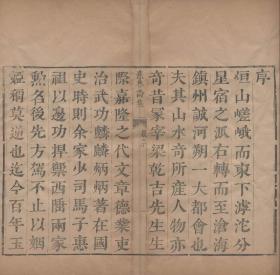 序
恒山嵯峨而東下滹沱分
星宿之派右轉而至滄海
鎮州誠河朔一大都會也
夫其山水奇所產人物亦
奇昔冢宰梁乾吉先生生
際嘉隆之代文章德業吏
治武功麟麟炳炳著在國
史時則余家少司馬子惠
祖以邊功捍禦西陲兩家
勲名後先方駕不止以姻
婭稱莫逆也迄今百年玉